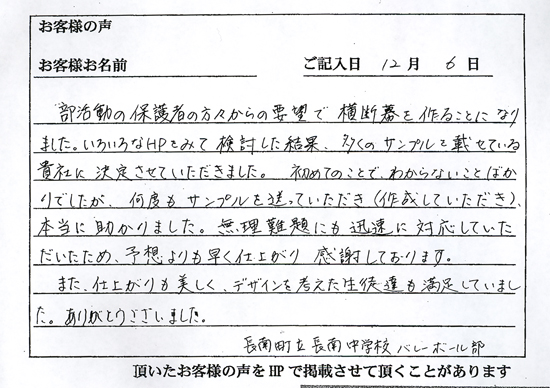 お客様の声
お客様お名前 ご記入日 12月 6日
部活動の保護者の方々からの要望で 横断幕を作ることになり
ました。いろいろなHPをみて 検討した結果、多くのサンプルを載せている
貴社に 決定させていただきました。 初めてのことで、わからないことばか
りでしたが、 何度も サンプルを送っていただき(作成していただき)、
本当に 助かりました。 無理難題にも 迅速に 対応していた
だいたため、予想よりも早く仕上がり 感謝しております。
また、仕上がりも美しく、デザインを考えた生徒達も満足していまし
た。ありがとうございました。
長南町立長南中学校 バレーボール部
頂いたお客様の声をHPで掲載させて頂くことがあります